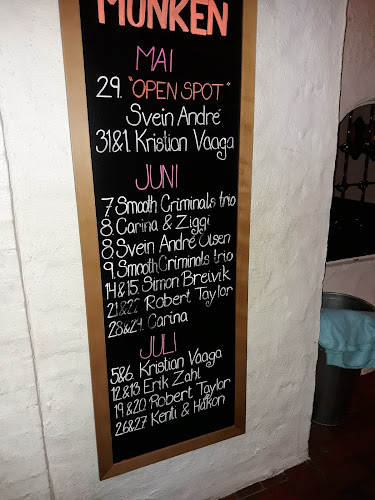 MUNKEN
MAI
29. "OPEN SPOT"
Svein André
31&1. Kristian Vaaga
JUNI
7. Smooth Criminals trio
8. Carina & Ziggi
8. Svein André Olsen
9. Smooth Criminals trio
14&15. Simon Breivik
21&22. Robert Taylor
28&29. Carina
JULI
5&6. Kristian Vaaga
12&13. Erik Zahl
19&20. Robert Taylor
26&27. Kenti & Håkon